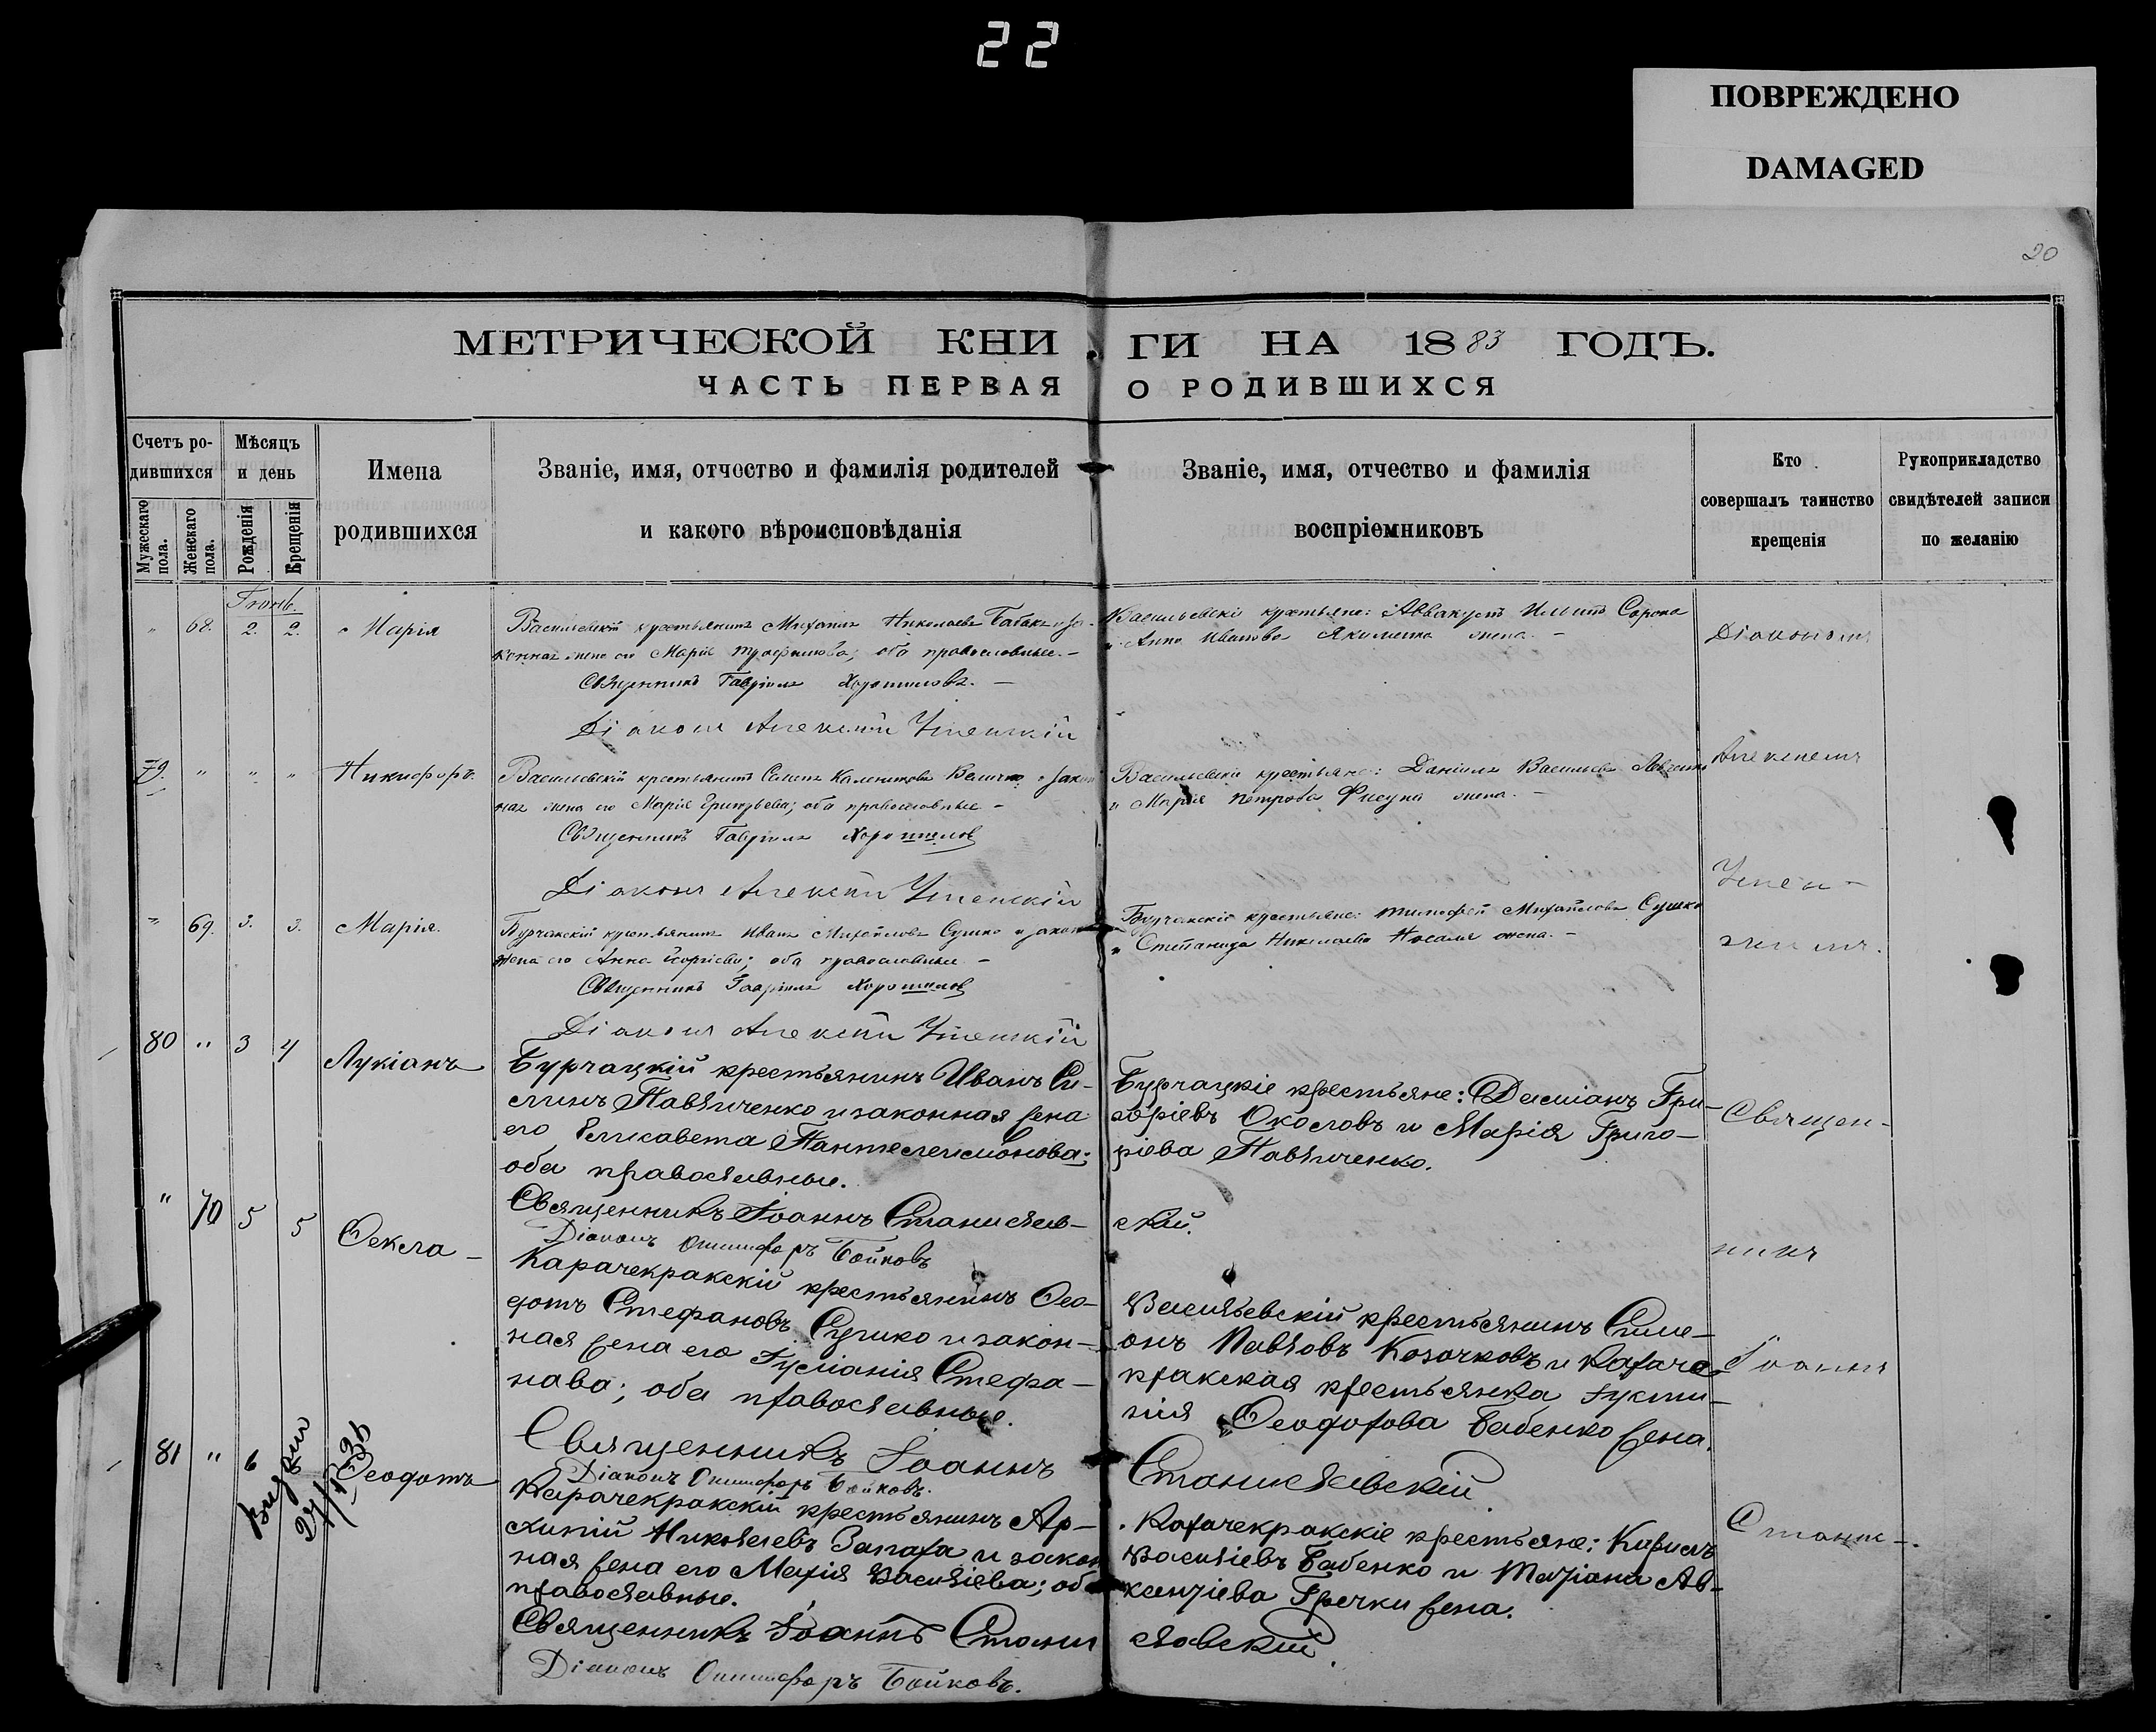 22
ПОВРЕЖДЕНО
DAMAGED
20
МЕТРИЧЕСКОЙ КНИ ГИ НА 1883 ГОДЪ.
ЧАСТЬ ПЕРВАЯ О РОДИВШИХСЯ
Счетъ ро-
дившихся
Мужескаго пола.
Женскаго пола.
Мѣсяцъ
и день
Рожденія
Крещенія
Имена
родившихся
Званіе, имя, отчество и фамилія родителей
и какого вѣроисповѣданія
Званіе, имя, отчество и фамилія
воспріемниковъ
Кто
совершалъ таинство
крещенія
Рукоприкладство
свидѣтелей записи
по желанію
" 68. 2. 2. Марія
Васильевскій крестьянинъ Михаилъ Николаевъ и за-
конная жена его Марія Трофимова; оба православные. –
Священникъ Гавріилъ Хорошиловъ. –
Діаконъ Алексѣй Успенскій
Васильевскіе крестьяне: Аввакумъ Сорока
и Анна Иванова жена. –
Діакономъ
79. " " " Никифоръ.
Васильевскій крестьянинъ Величко и закон
ная жена его Марія Григорьева; оба православные –
Священникъ Гавріилъ Хорошилов
Діаконъ Алексѣй Успенскій
Васильевскіе крестьяне: Даніилъ Васильевъ
и Марія Петрова Фисуна жена. –
Алексѣемъ
Успен-
скимъ.
" 69. 3. 3. Марія.
Бурчакскій крестьянинъ Иванъ Михайловъ Сушко и закон
жена его Анна; оба православные –
Священникъ Гавріилъ Хорошилов
Діаконъ Алексѣй Успенскій
Бурчакскіе крестьяне: Тимофей Михайловъ Сушко
и Степанида Николаева Носаля жена. –
80 " 3 4 Лукіанъ
Бурчацкій крестьянинъ Иванъ Си-
минъ Павличенко и законная жена
его Елисавета Пантелеимонова;
оба православные.
Священникъ Іоаннъ Станислав-
Діаконъ Онисифоръ Бойковъ
Бурчацкіе крестьяне: Даміанъ Гри-
горіевъ Околовъ и Марія Григо-
ріева Павличенко.
скій.
Священ-
никъ
" 70 5 5 Ѳекла –
Карачекракскій крестьянинъ Ѳео-
дотъ Стефановъ Сушко и закон-
ная жена его Іуліанія Стефа-
нова; оба православные.
Священникъ Іоаннъ
Діаконъ Онисифоръ Бойковъ.
Васильевскій крестьянинъ Симе-
онъ Павловъ Козачковъ и Караче
кракская крестьянка
Ѳеодорова Бабенко жена.
Станиславскій
Іоаннъ
81 " 6 Ѳеодотъ
Карачекракскій крестьянинъ Ар-
хипій Николаевъ Запара и закон
ная жена его Марія Василіева; оба
православные.
Священникъ Іоаннъ Стани
Діаконъ Онисифоръ Бойковъ.
Карачекракскіе крестьяне: Кирилъ
Василіевъ Бабенко и Татіана Ав-
ксентіева Гречки жена.
славскій.
Станис-